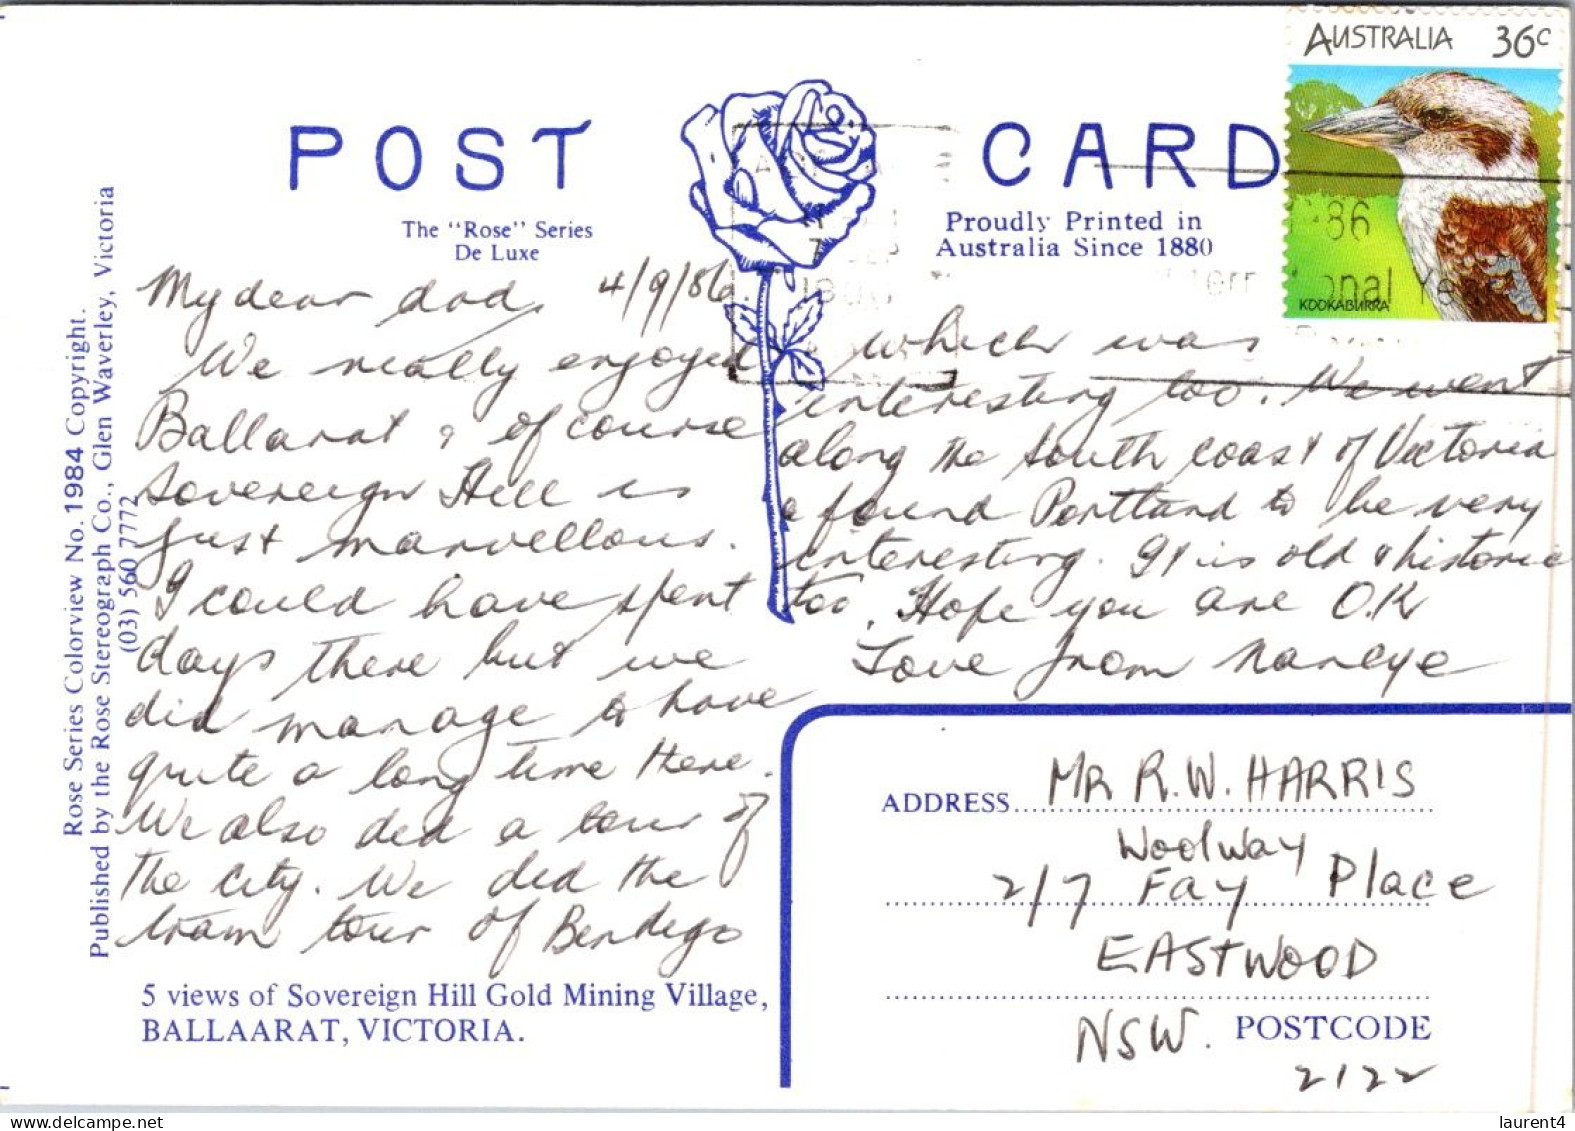 POST CARD
The "Rose" Series
De Luxe
Proudly Printed in
Australia Since 1880
AUSTRALIA 36c
KOOKABURRA
Rose Series Colorview No. 1984 Copyright.
Published by the Rose Stereograph Co., Glen Waverley, Victoria
(03) 560 7772
4/9/86.
My dear dad,
We really enjoyed
Ballarat & of course
Sovereign Hill is
just marvellous.
I could have spent
days there but we
did manage to have
quite a long time there.
We also did a tour of
the city. We did the
tram tour of Bendigo
which was
interesting too. We went
along the south coast of Victoria
& found Portland to be very
interesting. It is old & historic
too. Hope you are O.K
Love from Nareye
5 views of Sovereign Hill Gold Mining Village,
BALLAARAT, VICTORIA.
ADDRESS MR R.W. HARRIS
Woolway
2/7 FAY Place
EASTWOOD
NSW. POSTCODE
2122
laurent4